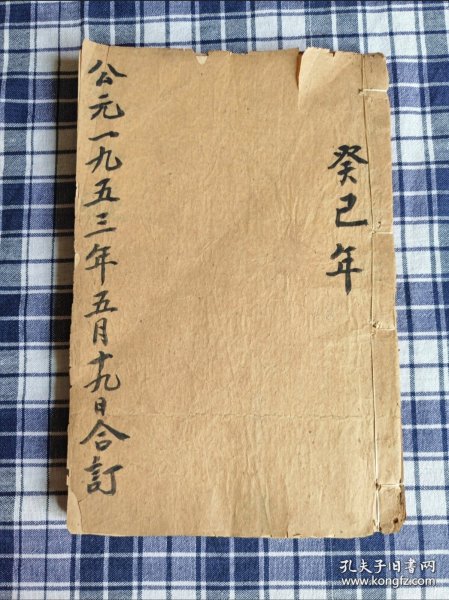 癸巳年
公元一九五三年五月十九日合訂
孔夫子旧书网
www.kongfz.com